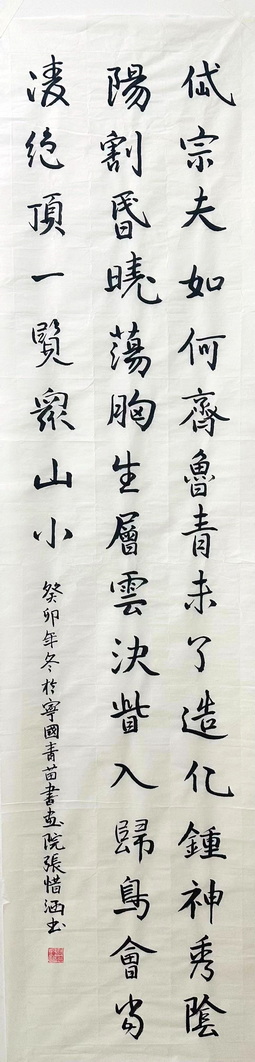 岱宗夫如何齊魯青未了造化鍾神秀陰
陽割昏曉蕩胸生層雲決眥入歸鳥會當
凌絕頂一覽衆山小
癸卯年冬於寧國青苗書畫院張惜涵書